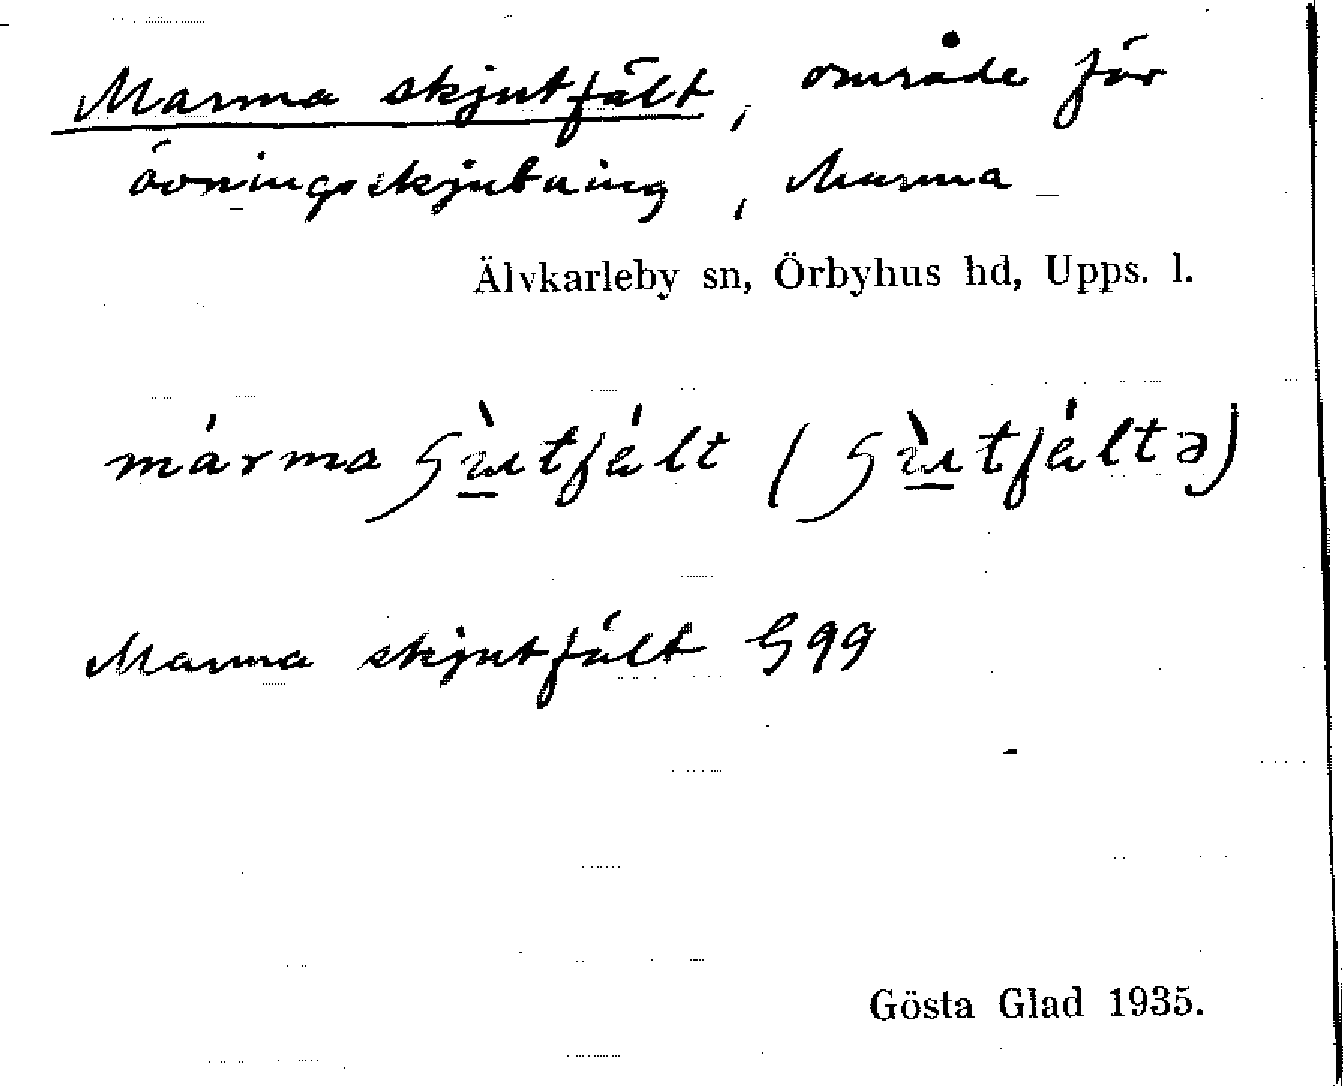 Marma skjutfält, område för
övningsskjutning, Marma
Älvkarleby sn, Örbyhus hd, Upps. l.
márma
Marma skjutfält G99
Gösta Glad 1935.